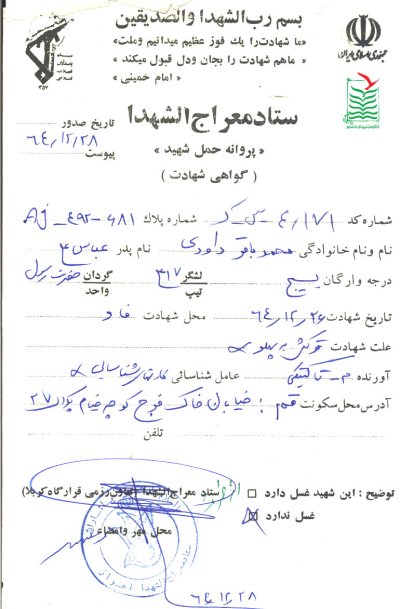 بسم رب الشهدا والصدیقین
«ما شهادت را یك فوز عظیم میدانیم وملت»
«ماهم شهادت را بجان ودل قبول میکند»
«امام خمینی»
جمهوری اسلامی ایران
ستاد معراج الشهدا
« پروانه حمل شهید »
( گواهی شهادت )
تاریخ صدور ۶۴/۱۲/۲۸
پیوست
شماره کد ۴/۱۷۱ شماره پلاك AJ_۴۹۲-۶۸۱
نام ونام خانوادگی محمد باقر داوری نام پدر عباس
درجه وارگان بسیج لشگر ۱۷ تیپ گردان واحد حضرت رسول
تاریخ شهادت ۶۴/۱۲/۲۶ محل شهادت فاو
علت شهادت ترکش به پهلو
آورنده عامل شناسائی کارتهای شناسایی
آدرس محل سکونت قم: خیابان خاک فرج کوچه خیام پلاک ۲۷
تلفن
توضیح : این شهید غسل دارد □
غسل ندارد ☒
ستاد معراج الشهدا (تعاون رزمی قرارگاه کربلا)
محل مهر وامضاء
ستاد معراج الشهدا اهواز
۶۴/۱۲/۲۸